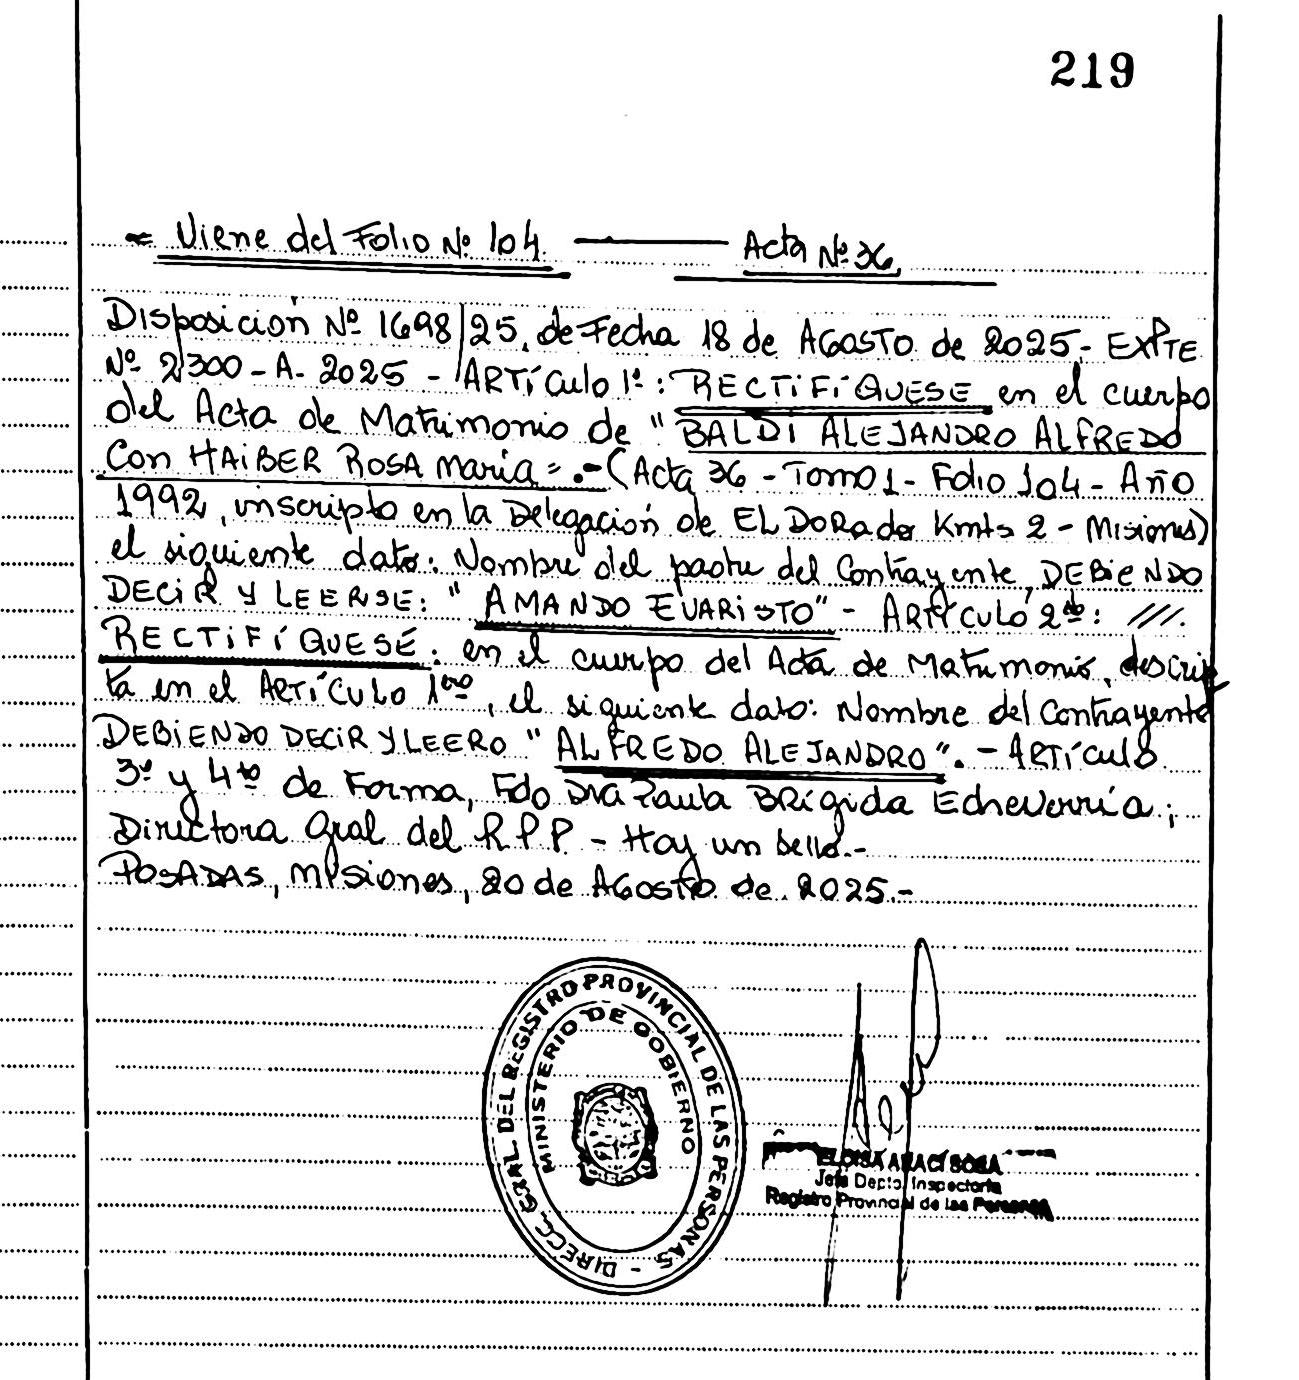 219
= Viene del Folio Nº 104. ——— Acta Nº 36.
Disposición Nº 1698/25, de Fecha 18 de Agosto de 2025.- EXPTE
Nº 2300-A-2025 - ARTÍCulo 1º: RECTIFÍQUESE en el cuerpo
del Acta de Matrimonio de "BALDI ALEJANDRO ALFREDO
Con HAIBER ROSA María".-(Acta 36 - Tomo 1 - Folio 104 - Año
1992, inscripto en la Delegación de ELDORado Kmts 2 - Misiones)
el siguiente dato: Nombre del padre del Contrayente, DEBIENDO
DECIR Y LEERSE: "AMANDO EVARISTO" - ARTÍCULO 2do: ///.
RECTIFÍQUESE: en el cuerpo del Acta de Matrimonio, descrip
ta en el ARTÍCULO 1ero, el siguiente dato: Nombre del Contrayente
DEBIENDO DECIR Y LEERO "ALFREDO ALEJANDRO".- ARTÍCulo
3º y 4to de Forma, Fdo Dra Paula BRÍgida Echeverría;
Directora Gral del R.P.P. - Hay un sello.-
POSADAS, Misiones, 20 de Agosto de 2025.-
DIRECC. GRAL. DEL REGISTRO PROVINCIAL DE LAS PERSONAS -
MINISTERIO DE GOBIERNO
ELOISA ARACI SOSA
Jefa Depto. Inspectoría
Registro Provincial de las Personas